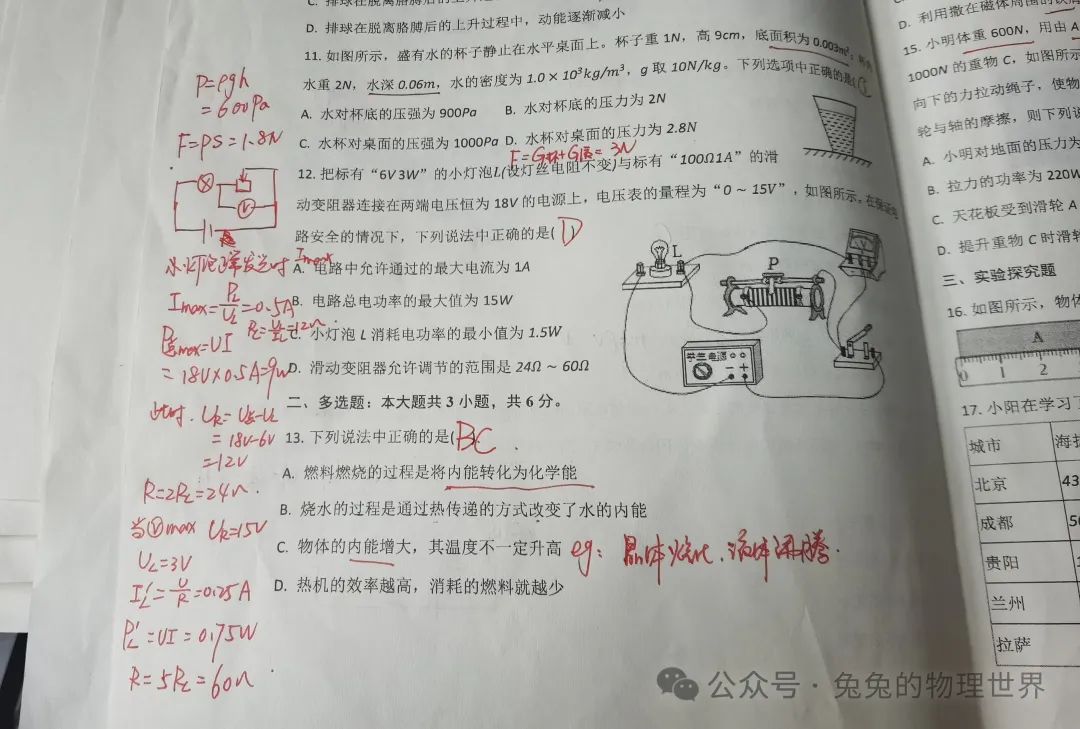 C. 排球在脱离胳膊后的上升
D. 排球在脱离胳膊后的上升过程中，动能逐渐减小
11. 如图所示，盛有水的杯子静止在水平桌面上。杯子重 1N，高 9cm，底面积为 0.003m²；杯内
水重 2N，水深 0.06m，水的密度为 1.0 × 10³kg/m³，g 取 10N/kg。下列选项中正确的是(
A. 水对杯底的压强为 900Pa B. 水对杯底的压力为 2N
C. 水杯对桌面的压强为 1000Pa D. 水杯对桌面的压力为 2.8N
F=G杯+G液=3N
12. 把标有“6V 3W”的小灯泡L(设灯丝电阻不变)与标有“100Ω1A”的滑
动变阻器连接在两端电压恒为 18V 的电源上，电压表的量程为“0 ~ 15V”，如图所示。在保证电
路安全的情况下，下列说法中正确的是( D
A. 电路中允许通过的最大电流为 1A
B. 电路总电功率的最大值为 15W
C. 小灯泡 L 消耗电功率的最小值为 1.5W
D. 滑动变阻器允许调节的范围是 24Ω ~ 60Ω
L
P
V
学生电源
二、多选题：本大题共 3 小题，共 6 分。
13. 下列说法中正确的是( BC
A. 燃料燃烧的过程是将内能转化为化学能
B. 烧水的过程是通过热传递的方式改变了水的内能
C. 物体的内能增大，其温度不一定升高 eg: 晶体熔化、液体沸腾.
D. 热机的效率越高，消耗的燃料就越少
P=ρgh
=600Pa
F=PS=1.8N
V
小灯泡正常发光时 Imax
Imax=PL/UL=0.5A
RL=U/IL=12Ω
P总max=UI
=18V×0.5A=9W
此时. UR=U总-UL
=18V-6V
=12V
R=2RL=24Ω.
当Ⓥmax UR=15V
UL=3V
IL'=U/R=0.25A
PL'=UI=0.75W
R=5RL=60Ω.
D. 利用撒在磁体周围的铁屑
15. 小明体重 600N，用由 A
1000N 的重物 C，如图所示
向下的力拉动绳子，使物
轮与轴的摩擦，则下列说
A. 小明对地面的压力为
B. 拉力的功率为 220W
C. 天花板受到滑轮 A
D. 提升重物 C 时滑轮
三、实验探究题
16. 如图所示，物体
A
0 1 2
17. 小阳在学习了
城市 海拔
北京 43
成都 50
贵阳
兰州
拉萨
公众号 · 兔兔的物理世界